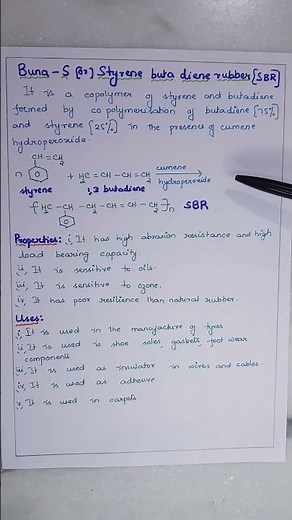 Buna-S (or) Styrene buta diene rubber [SBR]
It is a copolymer of styrene and butadiene
formed by co polymerisation of butadiene [75%]
and styrene [25%] in the presence of cumene
hydroperoxide.
CH = CH₂
n + H₂C = CH - CH = CH₂ cumene
hydroperoxide
styrene 1,3 butadiene
[H₂C - CH - CH₂ - CH = CH - CH₂]n SBR
Properties: i, It has high abrasion resistance and high
load bearing capacity
ii, It is sensitive to oils.
iii, It is sensitive to ozone.
iv, It has poor resilience than natural rubber.
Uses:
i, It is used in the manufacture of tyres.
ii, It is used is shoe soles, gaskets, foot wear
components
iii, It is used as insulator in wires and cables.
iv, It is used as adhesive
v, It is used in carpets